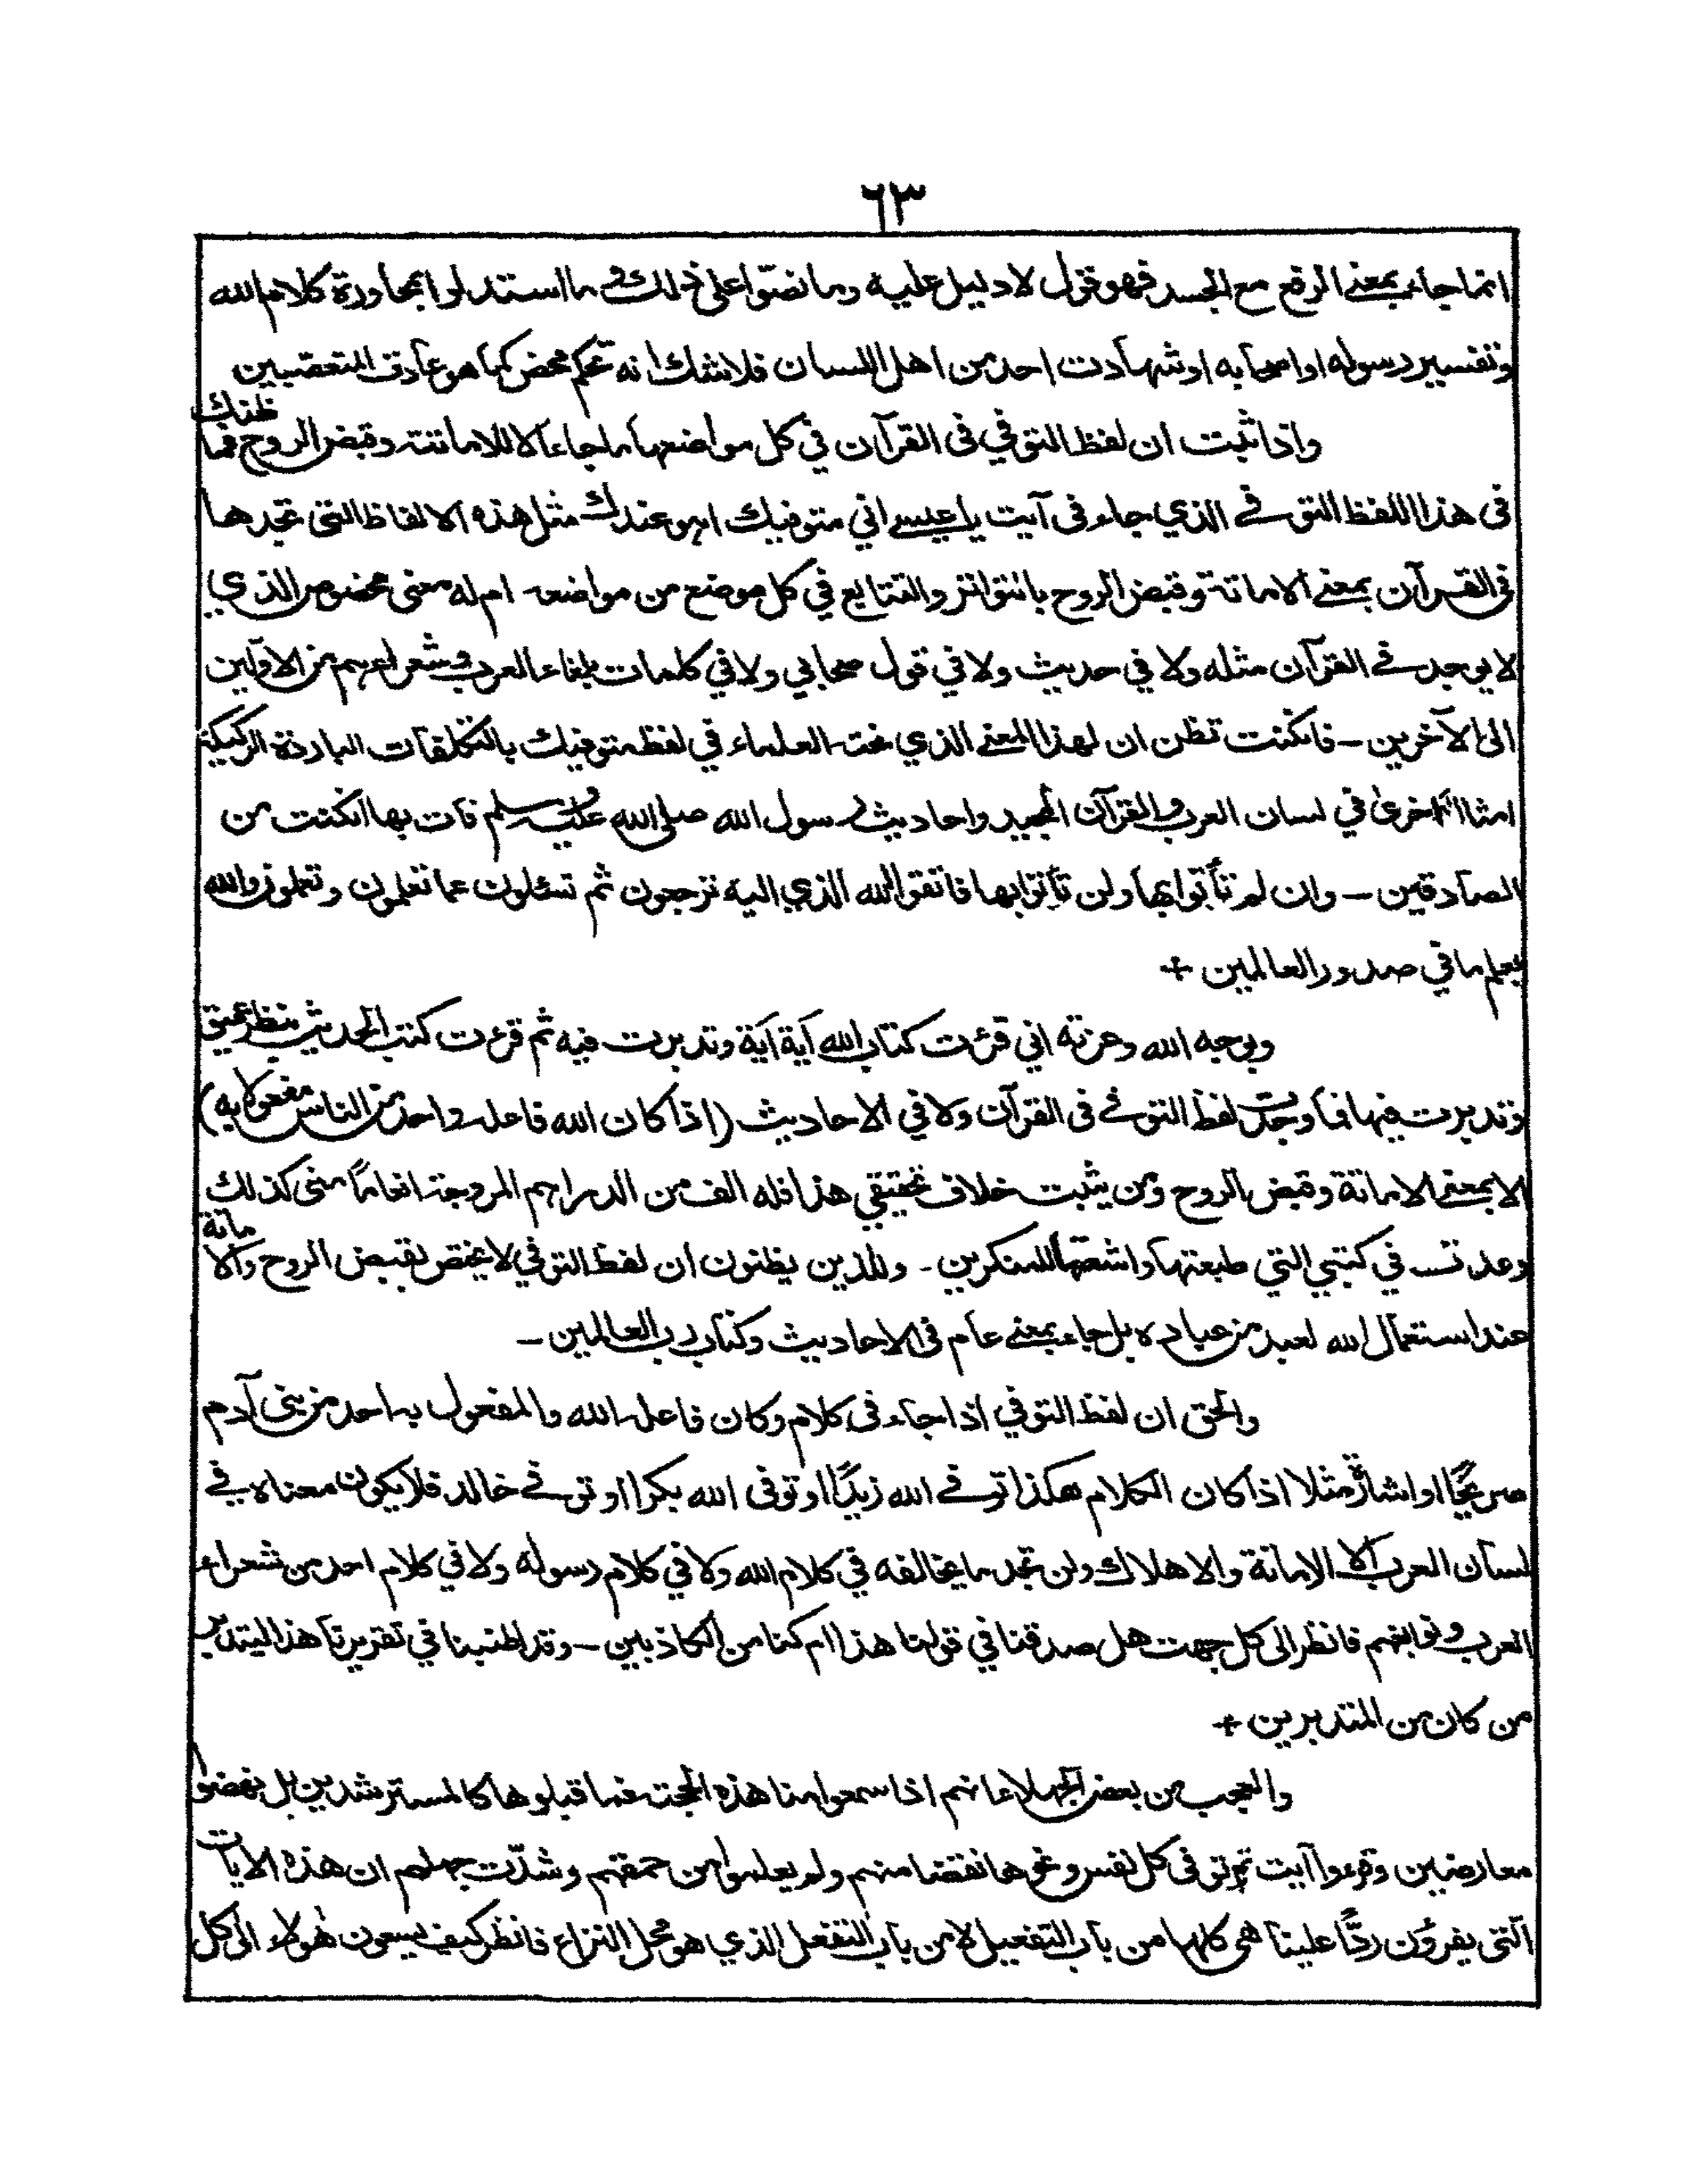 ٦٣
انما جاء بمعنى الرفع مع الجسد فهو قول لا دليل عليه وما نصّوا على ذلك وما استدلوا بمحاورة كلام الله
وتفسير رسوله او اصحابه او شهادت احد من اهل اللسان فلا شك انه تحكم محض كما هو عادت المتعصبين
واذا ثبت ان لفظ التوفي فى القرآن في كل مواضعها ما جاء الا للاماتة وقبض الروح فما ظنك
فى هذا اللفظ التوفي الذي جاء فى آيت يا عيسى اني متوفيك اهو عندك مثل هذه الالفاظ التى تجدها
فى القرآن بمعنى الاماتة وقبض الروح بالتواتر والتتابع في كل موضع من مواضعه ام له معنى مخصوص الذي
لا يوجد في القرآن مثله ولا في حديث ولا في قول صحابي ولا في كلمات بلغاء العرب وشعراءهم من الاولين
الى الآخرين - فان كنت تظن ان لهذا المعنى الذي نحته العلماء في لفظ متوفيك بالتكلفات الباردة الركيكة
امثالا اخرى في لسان العرب والقرآن المجيد واحاديث رسول الله صلى الله عليه وسلم فات بها ان كنت من
الصادقين - وان لم تأتوا بها ولن تأتوا بها فاتقوا الله الذي اليه ترجعون ثم تسئلون عما تعلمون وتعملون والله
يعلم ما في صدور العالمين +
وبوجه الله وعزته اني قرءت كتاب الله آية آية وتدبرت فيه ثم قرءت كتب الحديث بنظر عميق
وتدبرت فيها فما وجدت لفظ التوفي فى القرآن ولا في الاحاديث (اذا كان الله فاعله واحد من الناس مفعولا به)
الا بمعنى الاماتة وقبض الروح ومن يثبت خلاف تحقيقي هذا فله الف من الدراهم المروجة انعاما منى كذلك
وعدت في كتبي التي طبعتها واشعتها للمنكرين - وللذين يظنون ان لفظ التوفي لا يختص بقبض الروح والاماتة
عند استعمال الله لعبد من عباده بل جاء بمعنى عام فى الاحاديث وكتاب رب العالمين -
والحق ان لفظ التوفي اذا جاء فى كلام وكان فاعله الله والمفعول به احد من بنى آدم
صريحًا او اشارةً مثلا اذا كان الكلام هكذا توفى الله زيدًا او توفى الله بكرا او توفى خالد فلا يكون معناه في
لسان العرب الا الاماتة والاهلاك ولن تجد ما يخالفه في كلام الله ولا في كلام رسوله ولا في كلام احد من شعراء
العرب ونوابغهم فانظر الى كل جهت هل صدقنا في قولنا هذا ام كنا من الكاذبين - وقد اطنبنا في تقريرنا هذا ليتدبر
من كان من المتدبرين +
والعجب من بعض الجهلاء انهم اذا سمعوا منا هذه الحجة فما قبلوها كالمسترشدين بل نهضوا
معارضين وقرءوا آيت ثم توفى كل نفس ونحوها نقضا منهم ولم يعلموا من حمقهم وشدّت جهلهم ان هذه الايات
التى يقرؤن ردًّا علينا هى كلها من باب التفعيل لا من باب التفعل الذي هو محل النزاع فانظر كيف يسعون هٰؤلاء الى كل